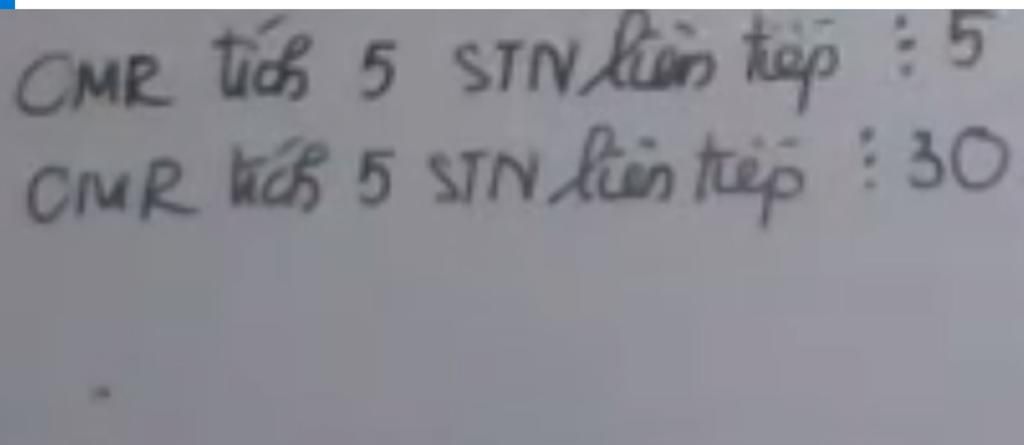 CMR tích 5 STN liên tiếp ⋮ 5
CMR tích 5 STN liên tiếp ⋮ 30